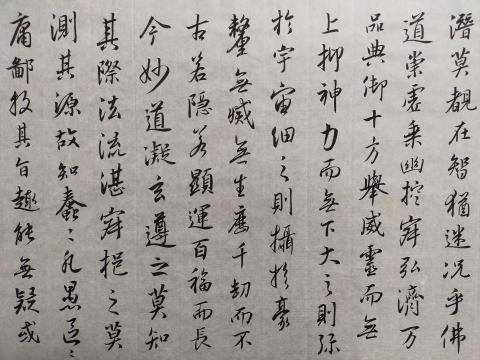 潛莫覩在智猶迷况乎佛
道崇虛乘幽控寂弘濟万
品典御十方舉威靈而無
上抑神力而無下大之則弥
於宇宙細之則攝於豪
釐無滅無生歷千劫而不
古若隱若顯運百福而長
今妙道凝玄遵之莫知
其際法流湛寂挹之莫
測其源故知蠢〻凡愚區〻
庸鄙投其旨趣能無疑或